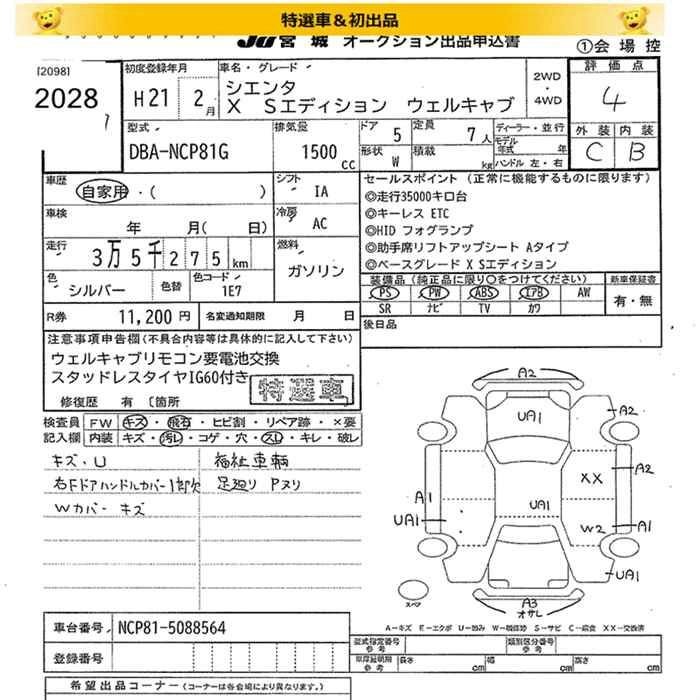 特選車＆初出品
JU 宮城 オークション出品申込書
①会場控
[2098]
2028
初度登録年月
H21 2月
車名・グレード
シエンタ
X Sエディション ウェルキャブ
2WD
・
4WD
評価点
4
外装 内装
C B
型式
DBA-NCP81G
排気量
1500cc
ドア 5
定員 7人
形状 W
積載 kg
ディーラー・並行
モデル年式 年
ハンドル 左・右
車歴
自家用・( )
シフト
IA
車検
年 月( 日)
冷房
AC
走行
3万5千275km
燃料
ガソリン
色
シルバー
色替
色コード
1E7
R券
11,200円
名変通知期限 月 日
セールスポイント (正常に機能するものに限ります)
◎走行35000キロ台
◎キーレス ETC
◎HID フォグランプ
◎助手席リフトアップシート Aタイプ
◎ベースグレード X Sエディション
装備品(純正品に限り○をつけてください)
新車保証書
PS PW ABS エアB AW
SR ナビ TV カワ
有・無
後日品
注意事項申告欄(不具合内容等は具体的に記入して下さい)
ウェルキャブリモコン要電池交換
スタッドレスタイヤIG60付き
特選車
修復歴 有 〔箇所
検査員記入欄
FW キズ・飛石・ヒビ割・リペア跡・×要
内装 キズ・汚レ・コゲ・穴・スレ・キレ・破レ
キズ・U
福祉車輌
右Fドアハンドルカバー1部欠
足廻り Pヌリ
Wカバー キズ
A2
UA1
A2
XX
A2
A1
UA1
UA1
W2
A1
UA1
スペア
A3
オサレ
A－キズ E－エクボ U－凹み W－補修跡 S－サビ C－腐食 XX－交換済
車台番号
NCP81-5088564
登録番号
型式指定番号参考
類別区分番号
車庫証明用参考
長さ cm 幅 cm 高さ cm
希望出品コーナー(コーナーは各会場により異なります。)